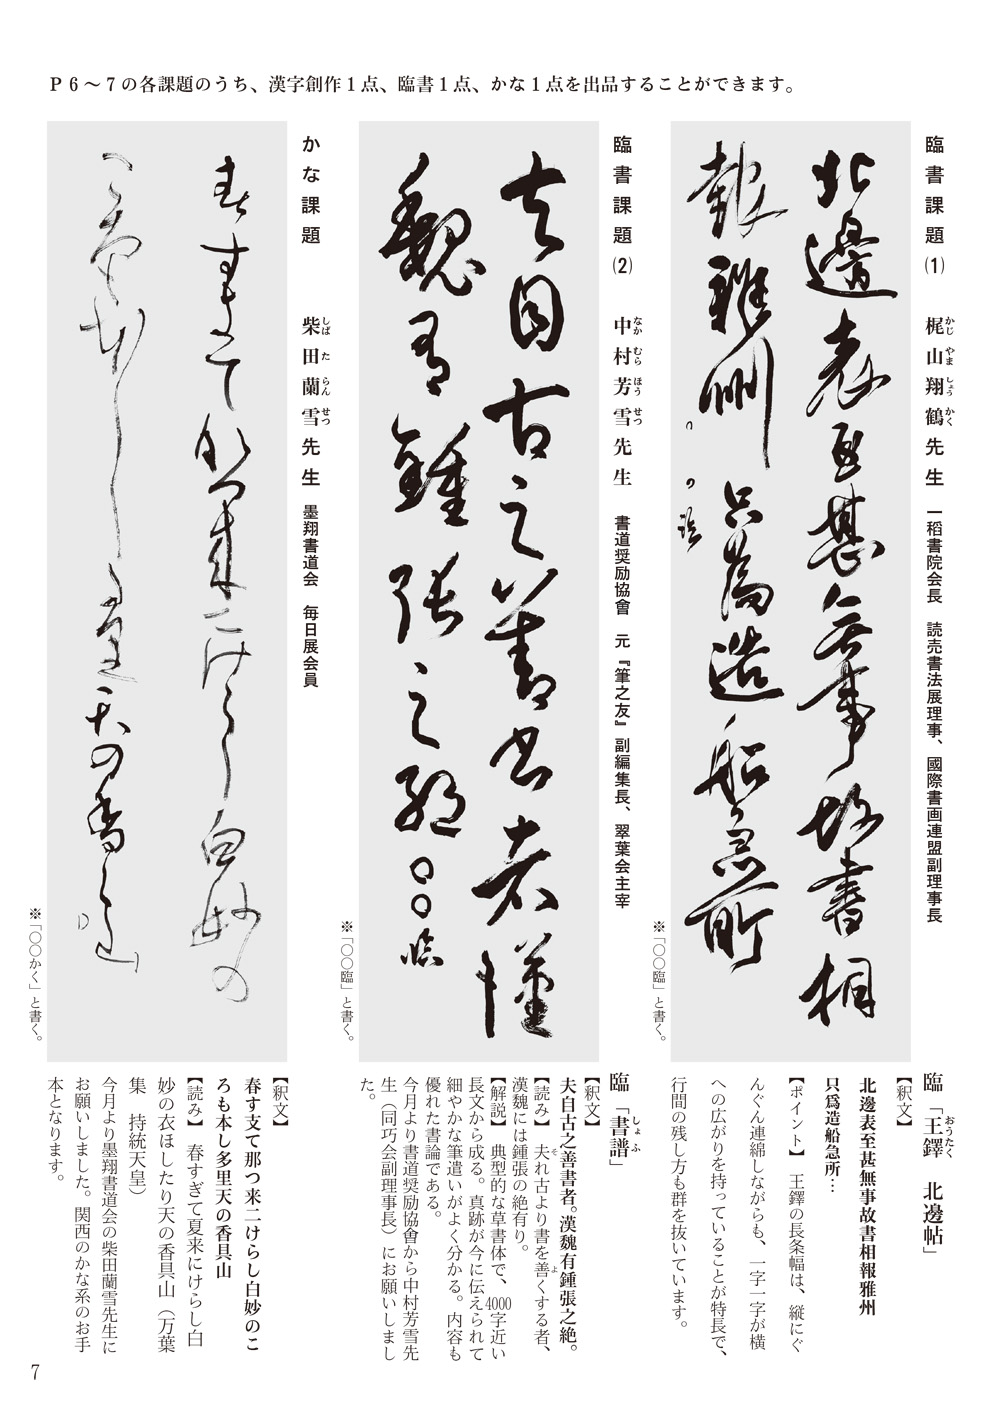 P6〜7の各課題のうち、漢字創作1点、臨書1点、かな1点を出品することができます。
臨書課題(1) 梶山翔鶴先生 一稲書院会長 読売書法展理事、國際書画連盟副理事長
かじ やま しょう かく
北邊表至甚無事故書相
報雅州只為造船急所
の臨
※「〇〇臨」と書く。
臨「王鐸 北邊帖」
おうたく
【釈文】
北邊表至甚無事故書相報雅州
只爲造船急所…
【ポイント】 王鐸の長条幅は、縦にぐ
んぐん連綿しながらも、一字一字が横
への広がりを持っていることが特長で、
行間の残し方も群を抜いています。
臨書課題(2) 中村芳雪先生 書道奨励協會 元『筆之友』副編集長、翠葉会主宰
なか むら ほう せつ
夫自古之善書者漢
魏有鍾張之絶〇〇臨
※「〇〇臨」と書く。
臨「書譜」
しょふ
【釈文】
夫自古之善書者。漢魏有鍾張之絶。
【読み】 夫れ古より書を善くする者、
そ よ
漢魏には鍾張の絶有り。
【解説】 典型的な草書体で、4000字近い
長文から成る。真跡が今に伝えられて
細やかな筆遣いがよく分かる。内容も
優れた書論である。
今月より書道奨励協會から中村芳雪先
生（同巧会副理事長）にお願いしまし
た。
かな課題 柴田蘭雪先生 墨翔書道会 毎日展会員
しば た らん せつ
春す支て那つ来二けらし白妙の
ころも本し多里天の香具山
※「〇〇かく」と書く。
【釈文】
春す支て那つ来二けらし白妙のこ
ろも本し多里天の香具山
【読み】 春すぎて夏来にけらし白
妙の衣ほしたり天の香具山（万葉
集 持統天皇）
今月より墨翔書道会の柴田蘭雪先生に
お願いしました。関西のかな系のお手
本となります。
7